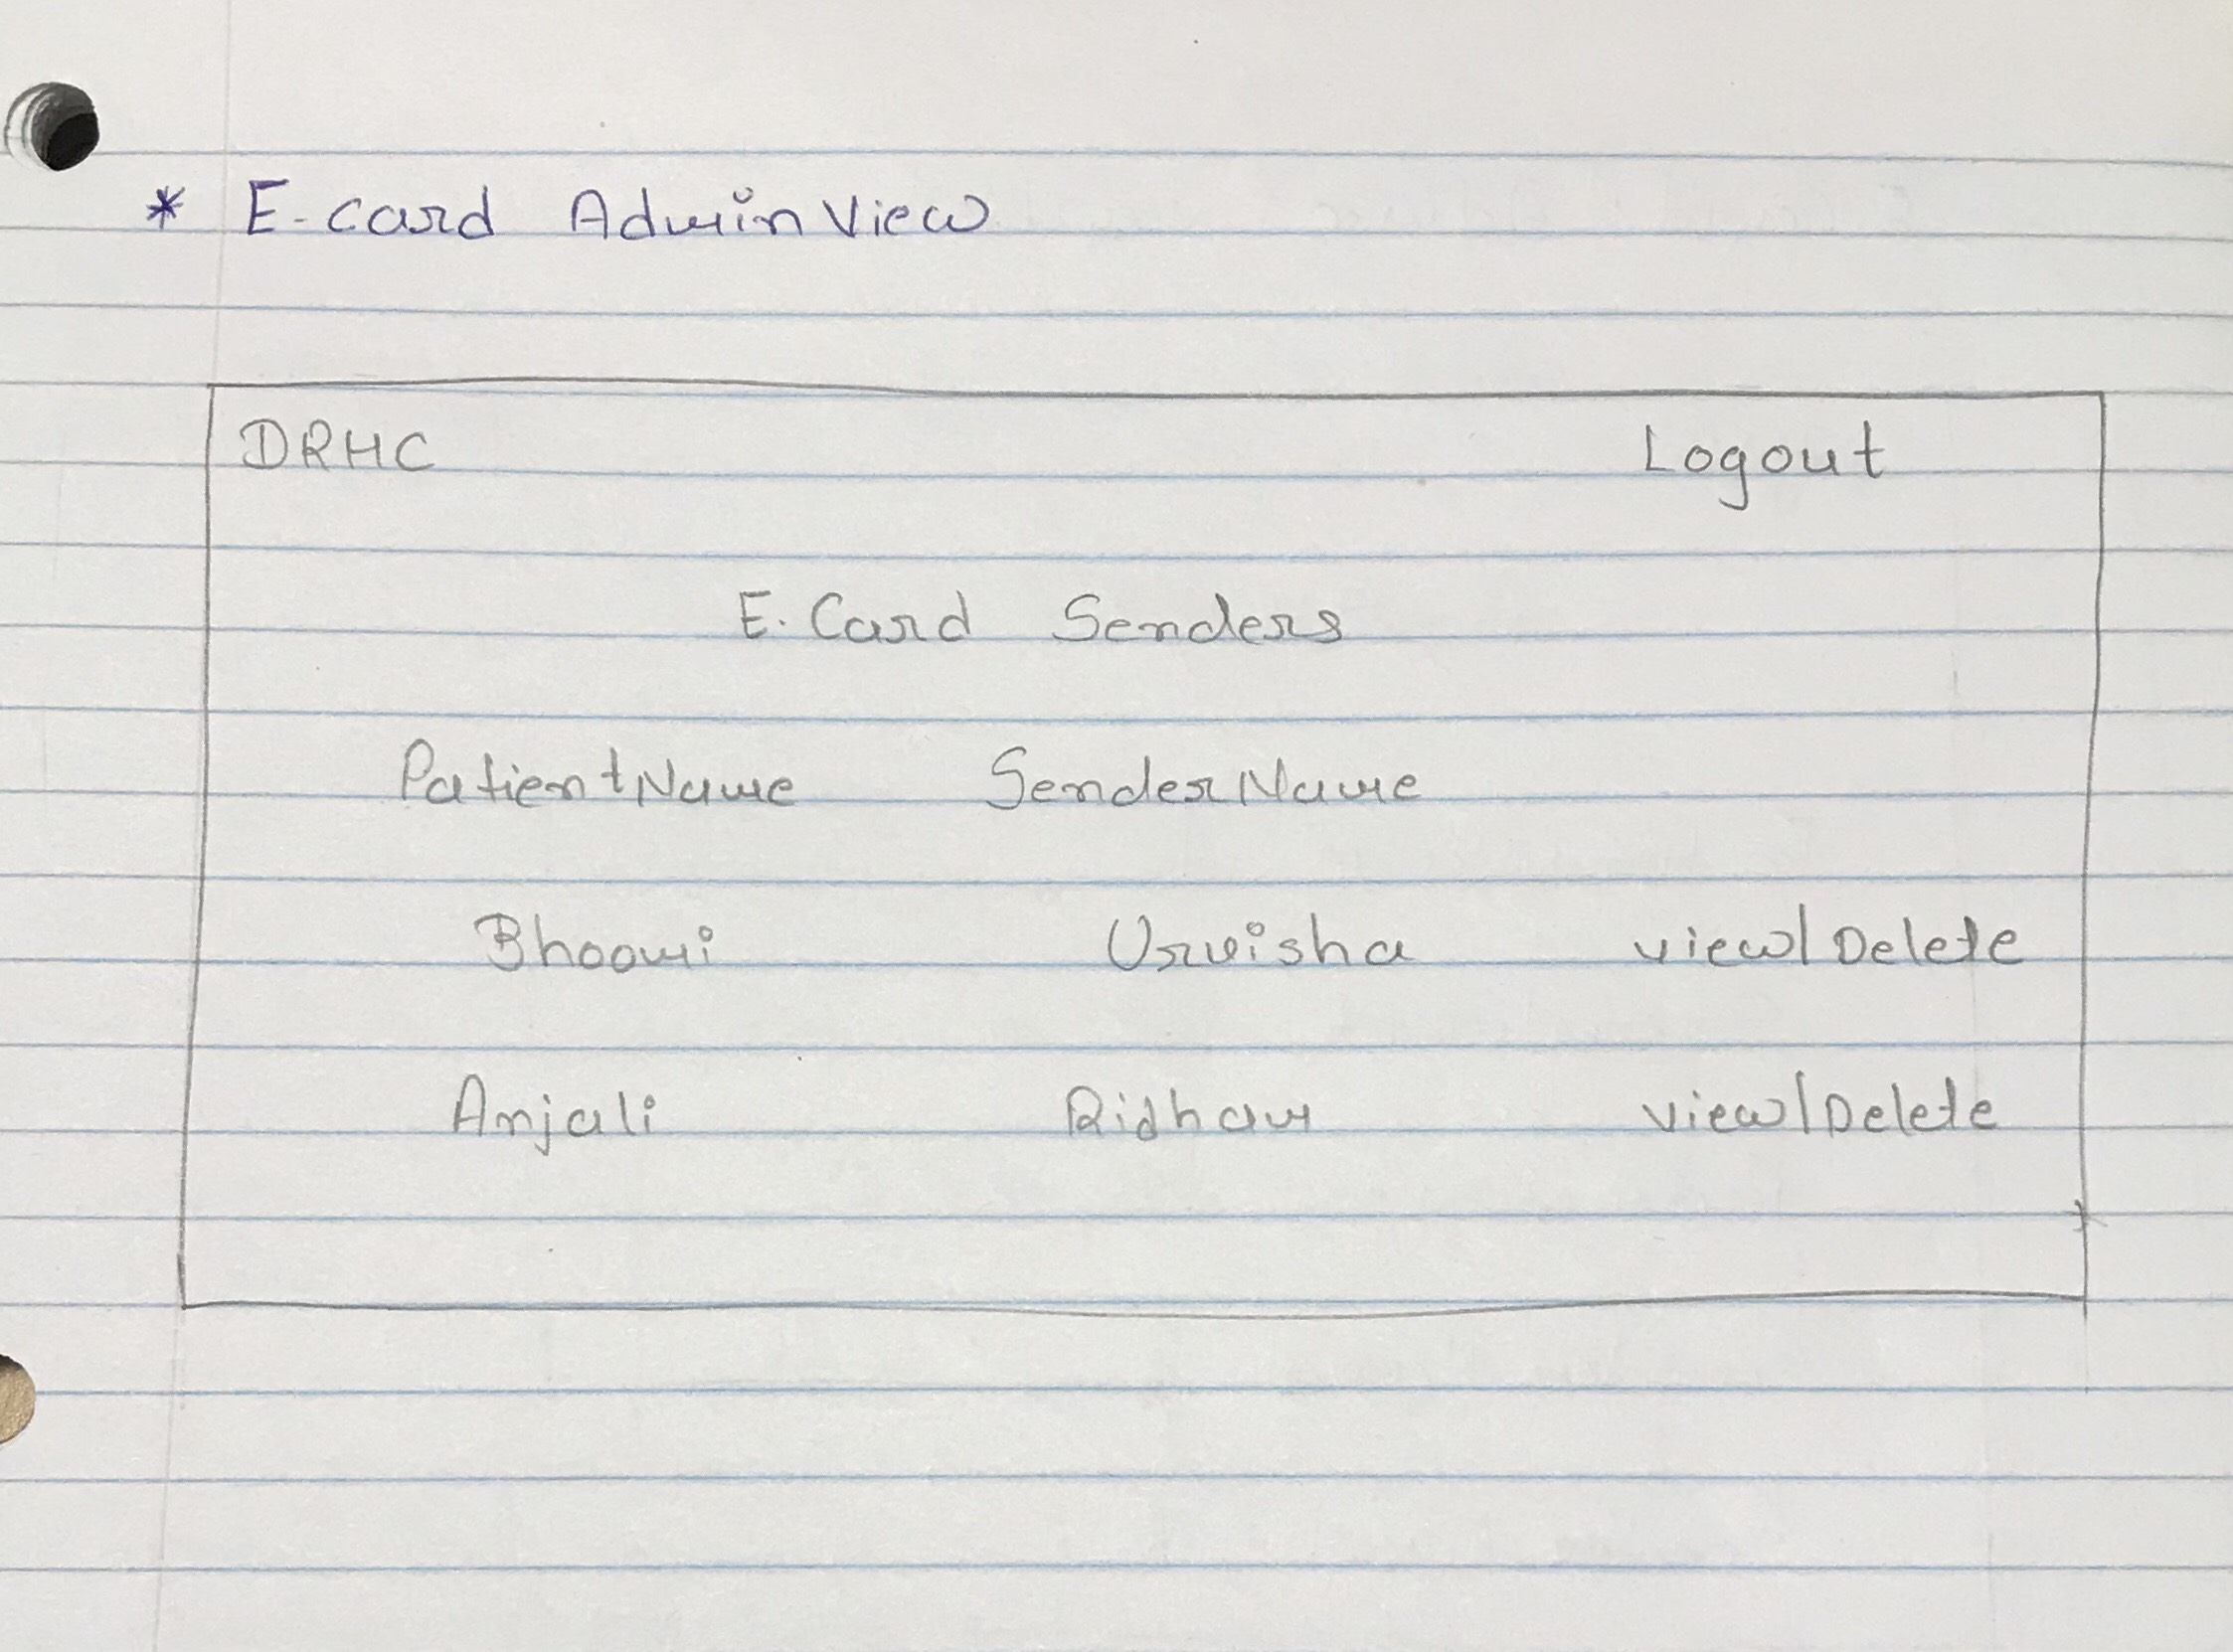 * E-card Admin View
DRHC Logout
E. Card Senders
PatientName SenderName
Bhoomi Urvisha view|Delete
Anjali Ridham view|Delete